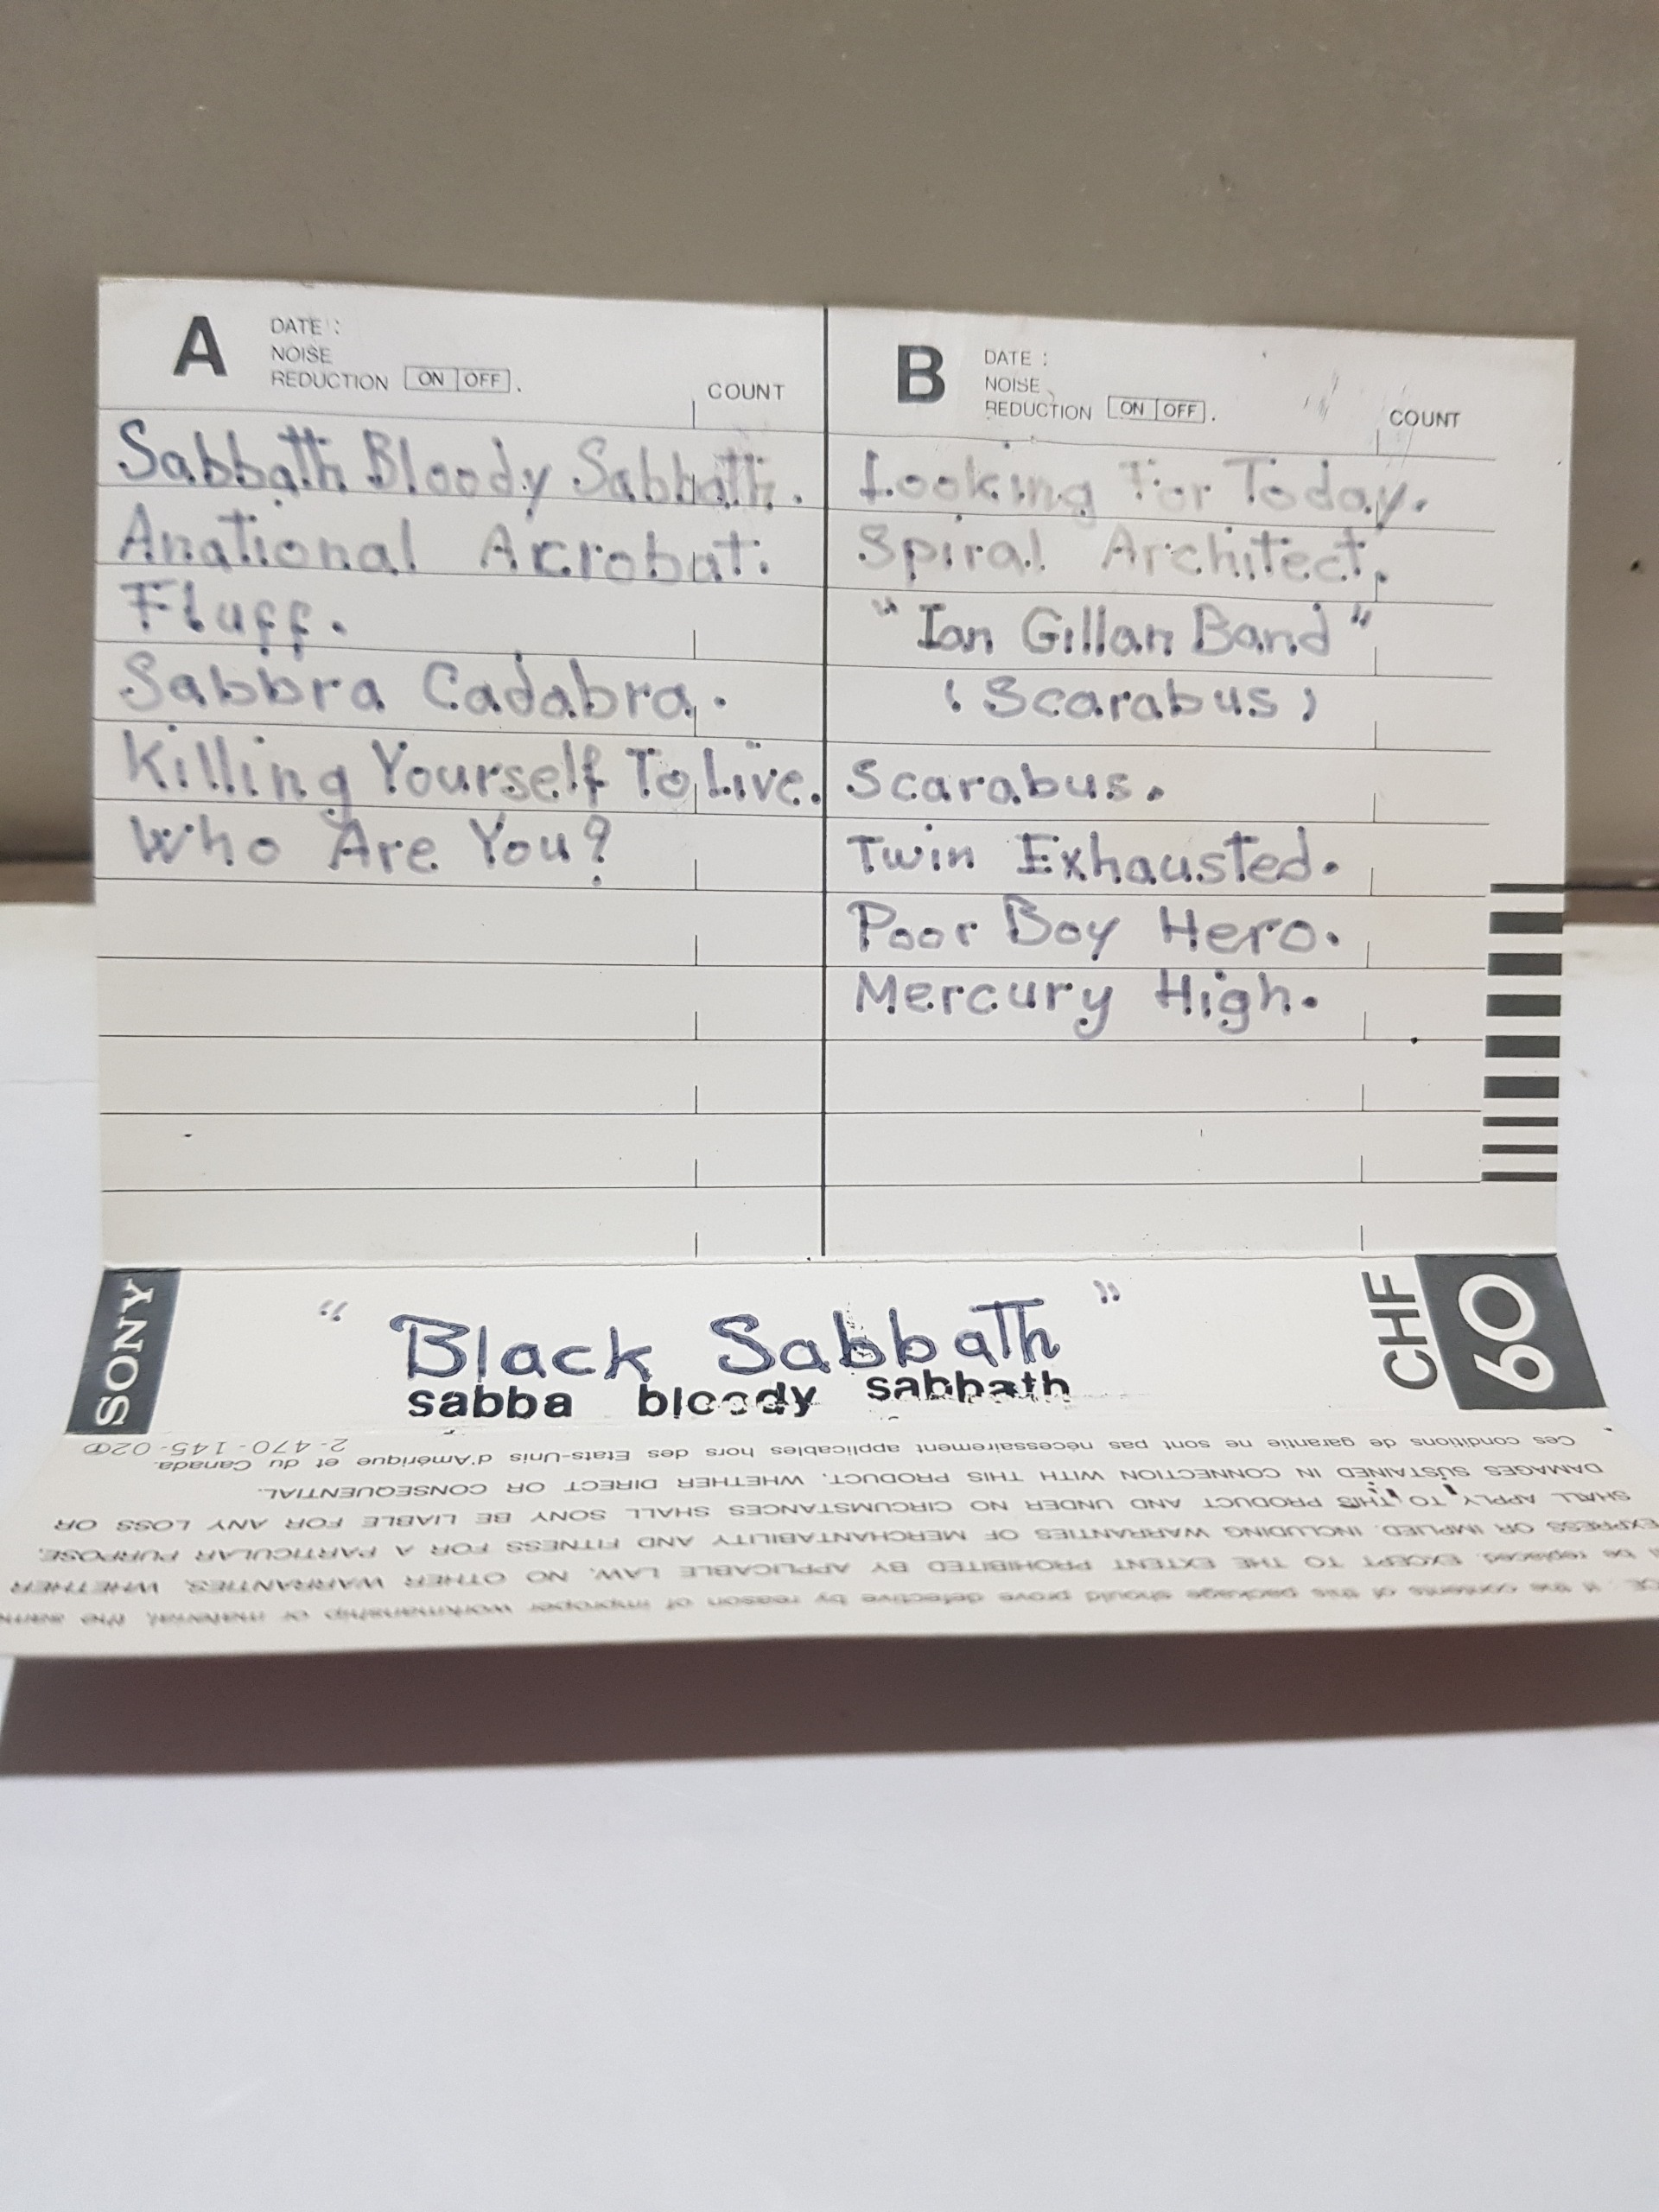 A
DATE :
NOISE
REDUCTION ON OFF .
COUNT
Sabbath Bloody Sabbath.
Anational Acrobat.
Fluff.
Sabbra Cadabra.
Killing Yourself To Live.
Who Are You?
B
DATE :
NOISE
REDUCTION ON OFF .
COUNT
Looking For Today.
Spiral Architect.
"Ian Gillan Band"
(Scarabus)
Scarabus.
Twin Exhausted.
Poor Boy Hero.
Mercury High.
SONY
"Black Sabbath"
sabba bloody sabbath
CHF
60
2-470-145-02①
Ces conditions de garantie ne sont pas nécessairement applicables hors des Etats-Unis d'Amérique et du Canada.
DAMAGES SUSTAINED IN CONNECTION WITH THIS PRODUCT, WHETHER DIRECT OR CONSEQUENTIAL.
SHALL APPLY TO THIS PRODUCT AND UNDER NO CIRCUMSTANCES SHALL SONY BE LIABLE FOR ANY LOSS OR
EXPRESS OR IMPLIED, INCLUDING WARRANTIES OF MERCHANTABILITY AND FITNESS FOR A PARTICULAR PURPOSE,
be replaced. EXCEPT TO THE EXTENT PROHIBITED BY APPLICABLE LAW, NO OTHER WARRANTIES, WHETHER
If the contents of this package should prove defective by reason of improper workmanship or material, the same